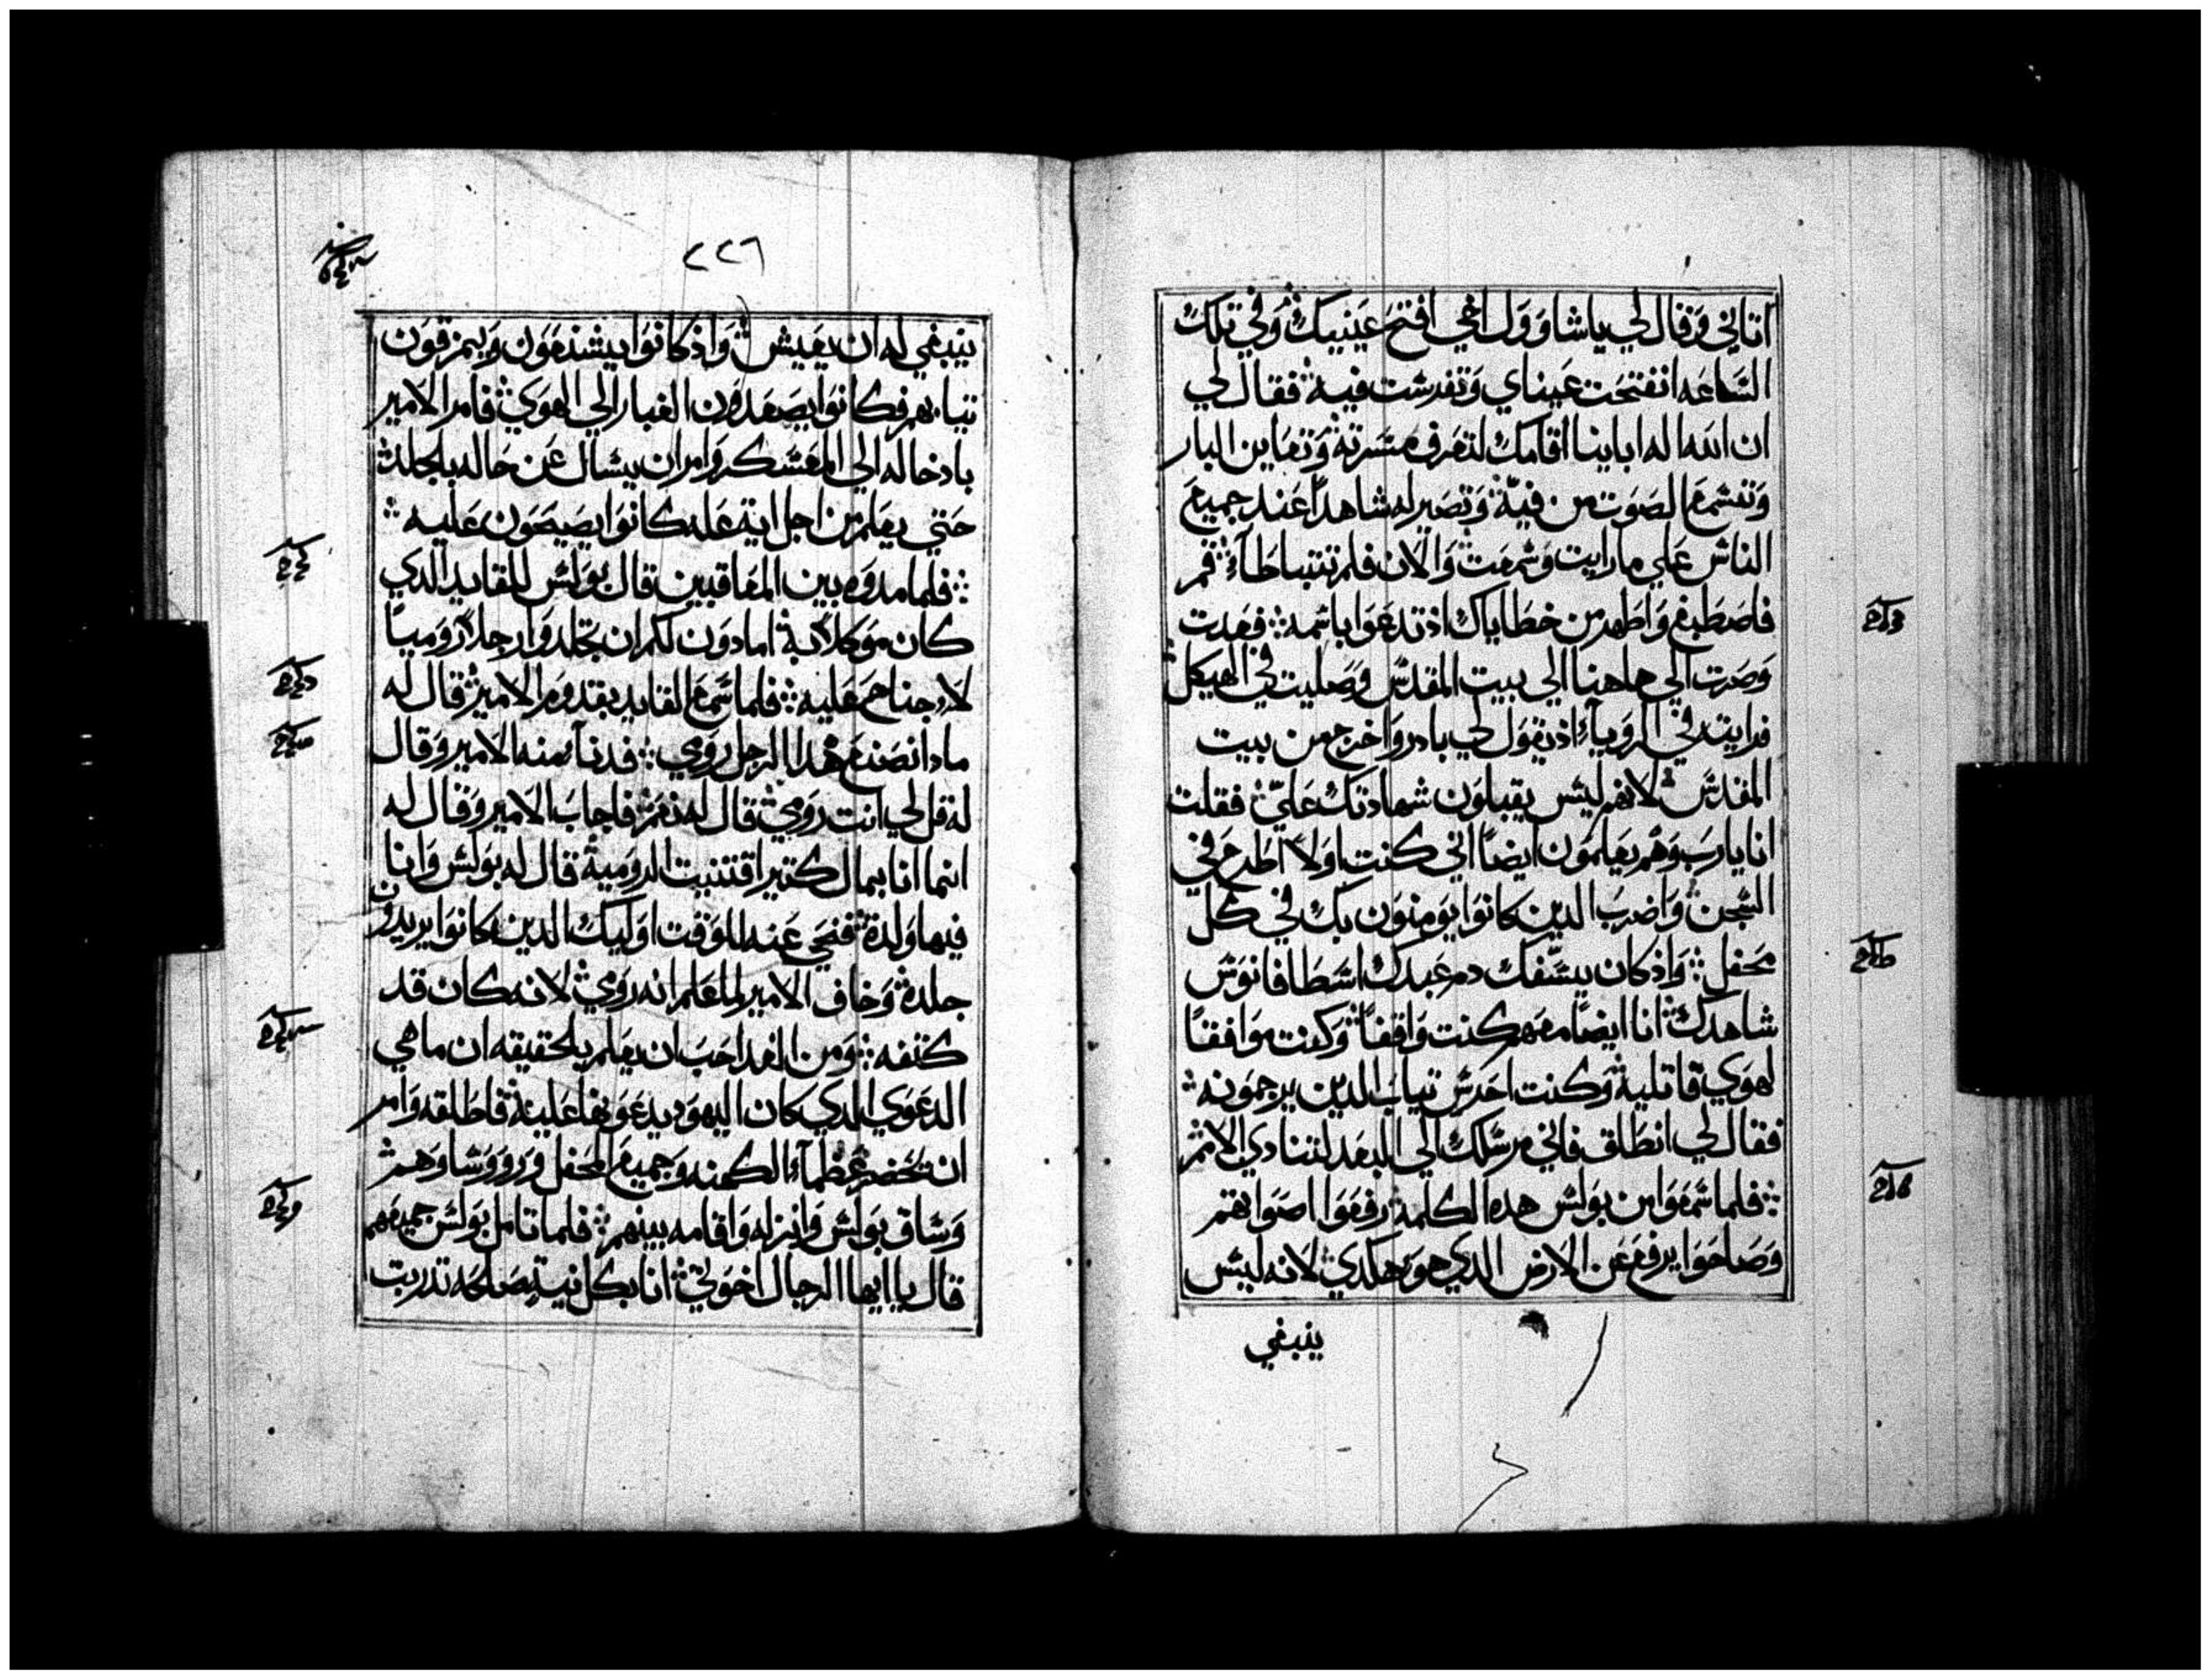 اتاني وقال لي ياشاوول اخي افتح عينيك وفي تلك
الساعه انفتحت عيناي وتفرست فيه فقال لي
ان الله اله اباينا اقامك لتعرف مسرته وتعاين البار
وتسمع الصوت من فيه وتصير له شاهدا عند جميع
الناس علي مارايت وسمعت والان فلم تتباطاء قم
فاصطبغ واطهر من خطاياك اذ تدعوا باسمه فعدت
وصرت الي هاهنا الي بيت المقدس وصليت في الهيكل
فرايته في الرويا اذ يقول لي بادر واخرج من بيت
المقدس لانهم ليس يقبلون شهادتك علي فقلت
انا يا رب وهم يعلمون ايضا اني كنت اولا اطرح في
السجن واضرب الدين كانوا يومنون بك في كل
محفل واذ كان يسفك دم عبدك اسطافانوس
شاهدك انا ايضا معهم كنت واقفا وكنت موافقا
لهوي قاتليه وكنت احرس تياب الدين يرجمونه
فقال لي انطلق فاني مرسلك الي البعد لتنادي الامم
فلما سمعوا من بولس هده الكلمه رفعوا اصواتهم
وصاحوا يرفع عن الارض الدي هو هكدي لانه ليس
ينبغي
٢٢٦
ينبغي له ان يعيش واذ كانوا يشنعون ويمزقون
تيابهم فكانوا يصعدون الغبار الي الهوي فامر الامير
بادخاله الي المعسكر وامر ان يسال عن حاله بالجلد
حتي يعلم من اجل اية عله كانوا يصيحون عليه
فلما مدوه بين المعاقبين قال بولس للقايد الدي
كان موكلا به امادون لكم ان تجلدوا رجلا روميا
لا جناح عليه فلما سمع القايد بقدوم الامير قال له
مادا نصنع هدا الرجل رومي فدنا منه الامير وقال
له قل لي انت رومي قال له نعم فاجاب الامير وقال له
انما انا بمال كتير اقتنيت الروميه قال له بولس وانا
فيها ولدة فنحي عنه للوقت اوليك الدين كانوا يريدون
جلدة وخاف الامير لما علم انه رومي لانه كان قد
كتفه ومن الغد احب ان يعلم بالحقيقه ان ما هي
الدعوي الدي كان اليهود يدعو بها عليه فاطلقه وامر
ان تحضر عظماء الكهنه وجميع المحفل وروساوهم
وساق بولس وانزله واقامه بينهم فلما تامل بولس جميعهم
قال ياايها الرجال اخوتي انا بكل نية صالحه تدربت